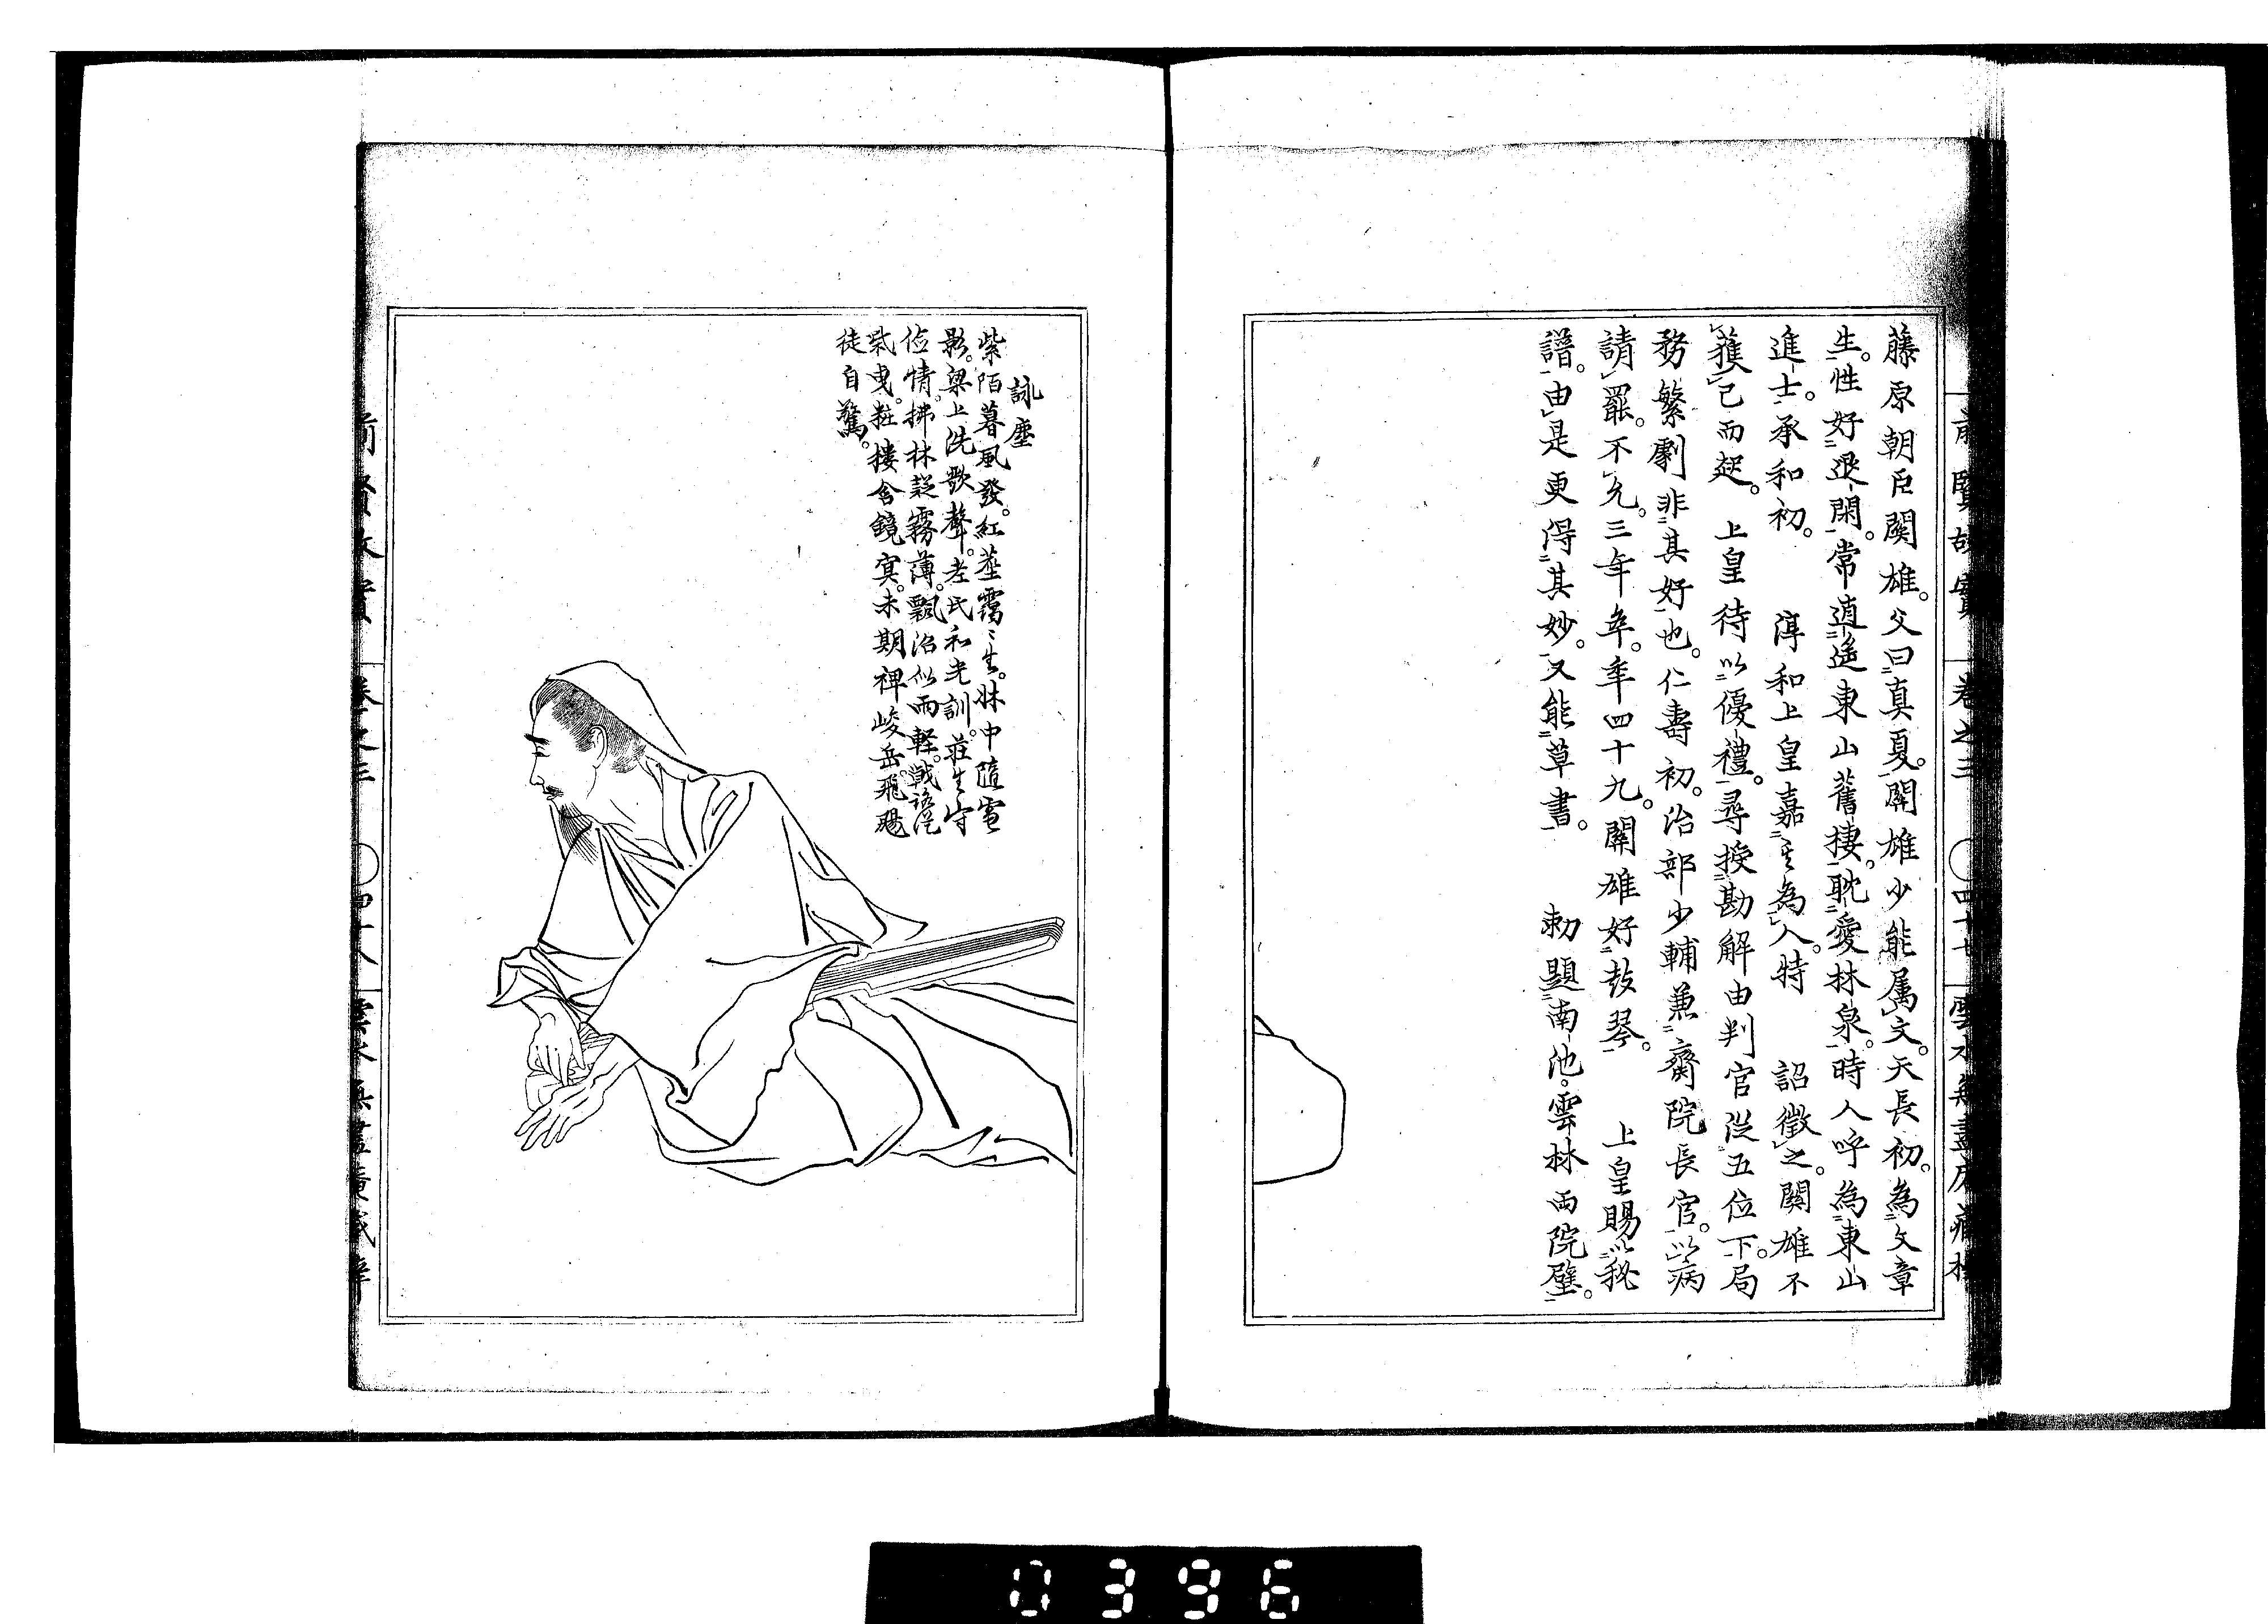 前賢故實　卷之三　○四十七　雲水無盡庵藏梓
藤原朝臣関雄。父曰真夏。関雄少能属文。天長初。為文章
生。性好退閑。常逍遙東山舊棲。耽愛林泉。時人呼為東山
進士。承和初。　淳和上皇嘉其為人。特　詔徴之。関雄不
獲已而起。　上皇待以優禮。尋授勘解由判官従五位下。局
務繁劇非其好也。仁壽初。治部少輔兼齋院長官。以病
請罷。不允。三年卒。年四十九。関雄好鼓琴。　上皇賜以秘
譜。由是更得其妙。又能草書。　勅題南池。雲林両院壁。
詠塵
紫陌暮風發。紅塵靄〻生。牀中隨電
影。梁上洗歌聲。老氏和光訓。荘生守
儉情。拂林疑霧薄。飄沼似雨軽。戦
気曳。粧樓含鏡冥。未期裨峻岳。飛颺
徒自驚。
前賢故實　卷之三　○四十八　雲水無盡庵藏梓
0396